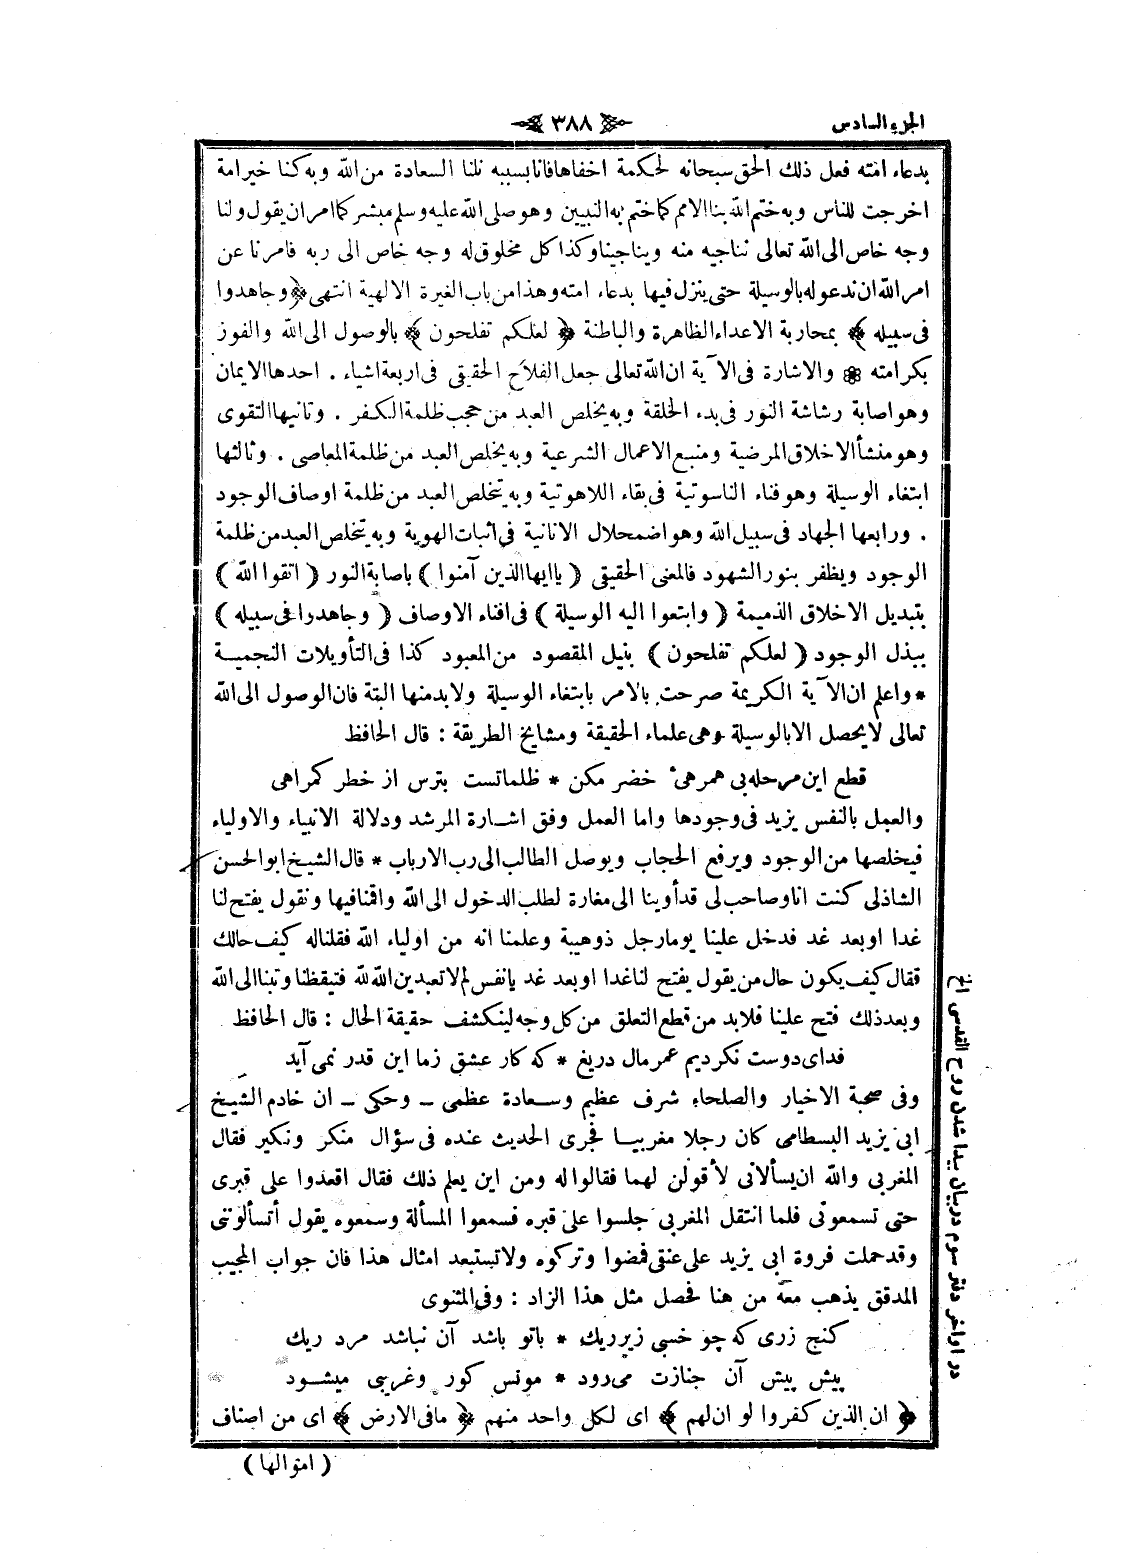 الجزء السادس
٣٨٨
بدعاء امته فعل ذلك الحق سبحانه لحكمة اخفاها فانا بسببه نلنا السعادة من الله وبه كنا خير امة
اخرجت للناس وبه ختم الله بنا الامم كما ختم به النبيين وهو صلى الله عليه وسلم مبشر كما امر ان يقول ولنا
وجه خاص الى الله تعالى نناجيه منه ويناجينا وكذا كل مخلوق له وجه خاص الى ربه فامرنا عن
امر الله ان ندعو له بالوسيلة حتى ينزل فيها بدعاء امته وهذا من باب الغيرة الالهية انتهى ﴿ وجاهدوا
فى سبيله ﴾ بمحاربة الاعداء الظاهرة والباطنة ﴿ لعلكم تفلحون ﴾ بالوصول الى الله والفوز
بكرامته ❁ والاشارة فى الآية ان الله تعالى جعل الفلاح الحقيقى فى اربعة اشياء . احدها الايمان
وهو اصابة رشاشة النور فى بدء الخلقة وبه يخلص العبد من حجب ظلمة الكفر . وثانيها التقوى
وهو منشأ الاخلاق المرضية ومنبع الاعمال الشرعية وبه يخلص العبد من ظلمة المعاصى . وثالثها
ابتغاء الوسيلة وهو فناء الناسوتية فى بقاء اللاهوتية وبه يتخلص العبد من ظلمة اوصاف الوجود
. ورابعها الجهاد فى سبيل الله وهو اضمحلال الانانية فى اثبات الهوية وبه يتخلص العبد من ظلمة
الوجود ويظفر بنور الشهود فالمعنى الحقيقى ( ياايها الذين آمنوا ) باصابة النور ( اتقوا الله )
بتبديل الاخلاق الذميمة ( وابتغوا اليه الوسيلة ) فى افناء الاوصاف ( وجاهدوا فى سبيله )
ببذل الوجود ( لعلكم تفلحون ) بنيل المقصود من المعبود كذا فى التأويلات النجمية
* واعلم ان الآية الكريمة صرحت بالامر بابتغاء الوسيلة ولابد منها البتة فان الوصول الى الله
تعالى لا يحصل الا بالوسيلة وهى علماء الحقيقة ومشايخ الطريقة : قال الحافظ
قطع اين مرحله بى همرهئ خضر مكن * ظلماتست بترس از خطر كمراهى
والعمل بالنفس يزيد فى وجودها واما العمل وفق اشارة المرشد ودلالة الانبياء والاولياء
فيخلصها من الوجود ويرفع الحجاب ويوصل الطالب الى رب الارباب * قال الشيخ ابو الحسن
الشاذلى كنت انا وصاحب لى قد أوينا الى مغارة لطلب الدخول الى الله واقمنا فيها ونقول يفتح لنا
غدا او بعد غد فدخل علينا يوما رجل ذوهيبة وعلمنا انه من اولياء الله فقلنا له كيف حالك
فقال كيف يكون حال من يقول يفتح لنا غدا او بعد غد يانفس لم لا تعبدين الله لله فتيقظنا وتبنا الى الله
وبعد ذلك فتح علينا فلابد من قطع التعلق من كل وجه لينكشف حقيقة الحال : قال الحافظ
فداى دوست نكرديم عمر مال دريغ * كه كار عشق زما اين قدر نمى آيد
وفى صحبة الاخيار والصلحاء شرف عظيم وسعادة عظمى ـ وحكى ـ ان خادم الشيخ
ابى يزيد البسطامى كان رجلا مغربيا فجرى الحديث عنده فى سؤال منكر ونكير فقال
المغربى والله ان يسألانى لأقولن لهما فقالوا له ومن اين يعلم ذلك فقال اقعدوا على قبرى
حتى تسمعونى فلما انتقل المغربى جلسوا على قبره فسمعوا المسألة وسمعوه يقول أتسألوننى
وقد حملت فروة ابى يزيد على عنقى فمضوا وتركوه ولا تستبعد امثال هذا فان جواب المجيب
المدقق يذهب معه من هنا فحصل مثل هذا الزاد : وفى المثنوى
كنج زرى كه چو خسبى زير ريك * باتو باشد آن نباشد مرد ريك
پيش پيش آن جنازت مى رود * مونس كور وغريبى ميشود
﴿ ان الذين كفروا لو ان لهم ﴾ اى لكل واحد منهم ﴿ مافى الارض ﴾ اى من اصناف
( اموالها )
در اواخر دفتر سوم دربيان پيدا شدن روح القدس الخ